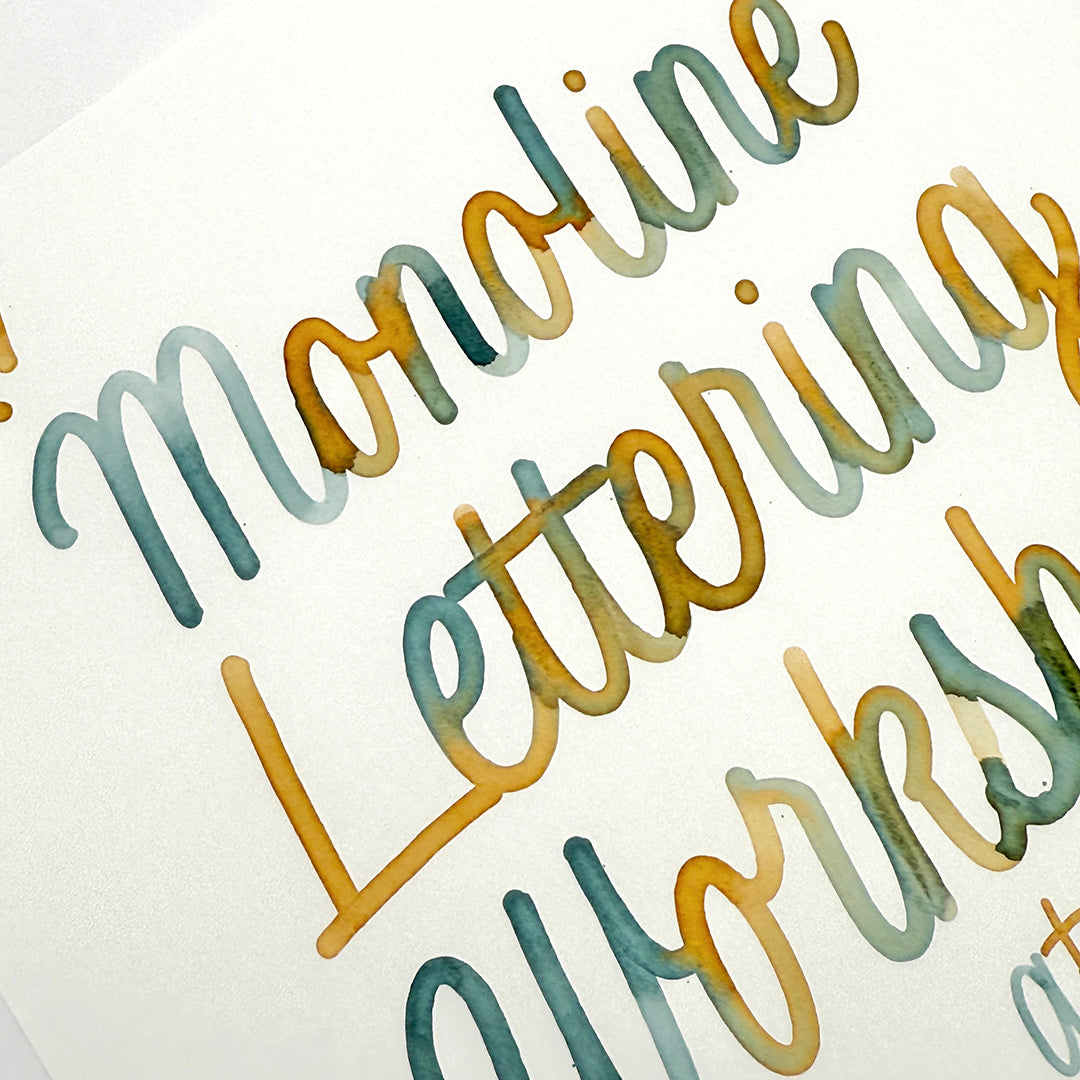 Monoline
Lettering
Worksh